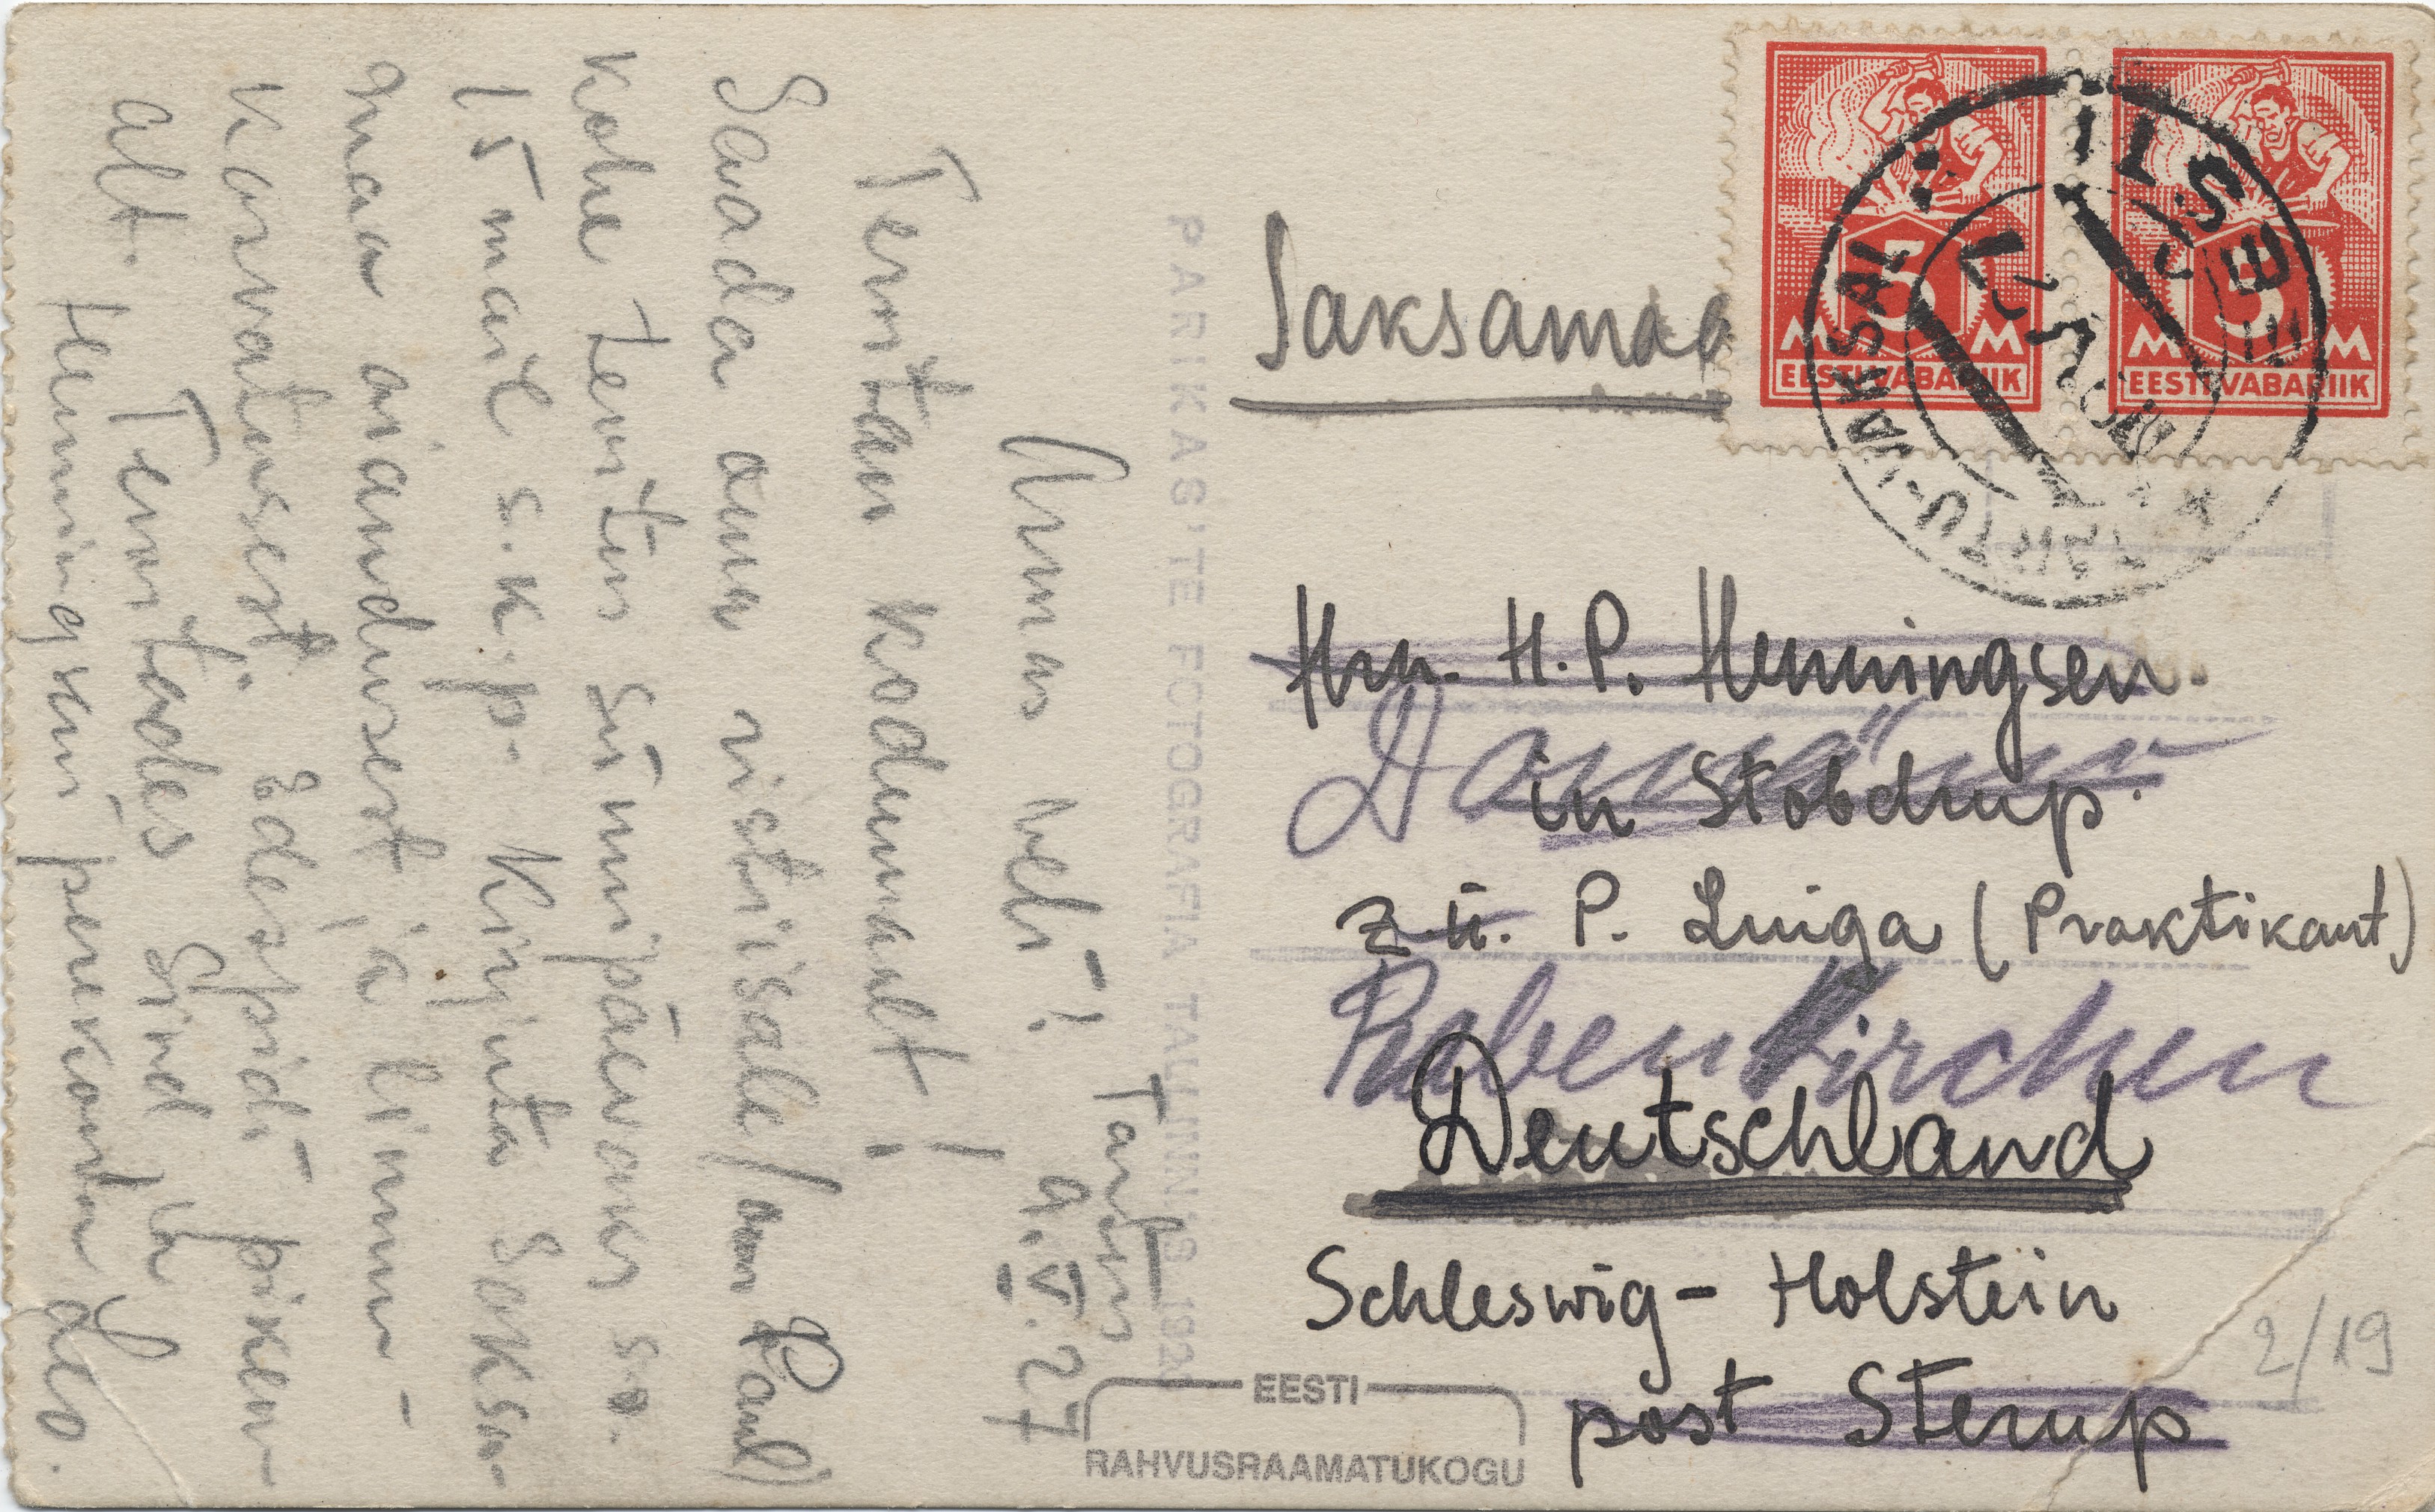 Tartus
9.IV.27
Armas veli!
Tervitan kodumaalt!
Saada oma ristiisale/onu Paul/
kohe tervitus sünnipäevaks s.o.
15 mail s.k.p. Kirjuta Saksa-
maa aiandusest ja linnu-
kasvatusest. Edespidi pikem-
alt. Tervitades Sind ja
Henningseni perekonda
PARIKAS'TE FOTOGRAFIA TALLINN'S
Saksamaa
5 5
M M M M
EESTI VABARIIK EESTI VABARIIK
TARTU-VAKSAL EESTI
Hrn. H.P. Henningsen.
in Stobdrup.
z.ü. P. Luiga (Praktikant)
Rabenkirchen
Deutschland
Schleswig-Holstein
post Sterup
2/19
EESTI
RAHVUSRAAMATUKOGU